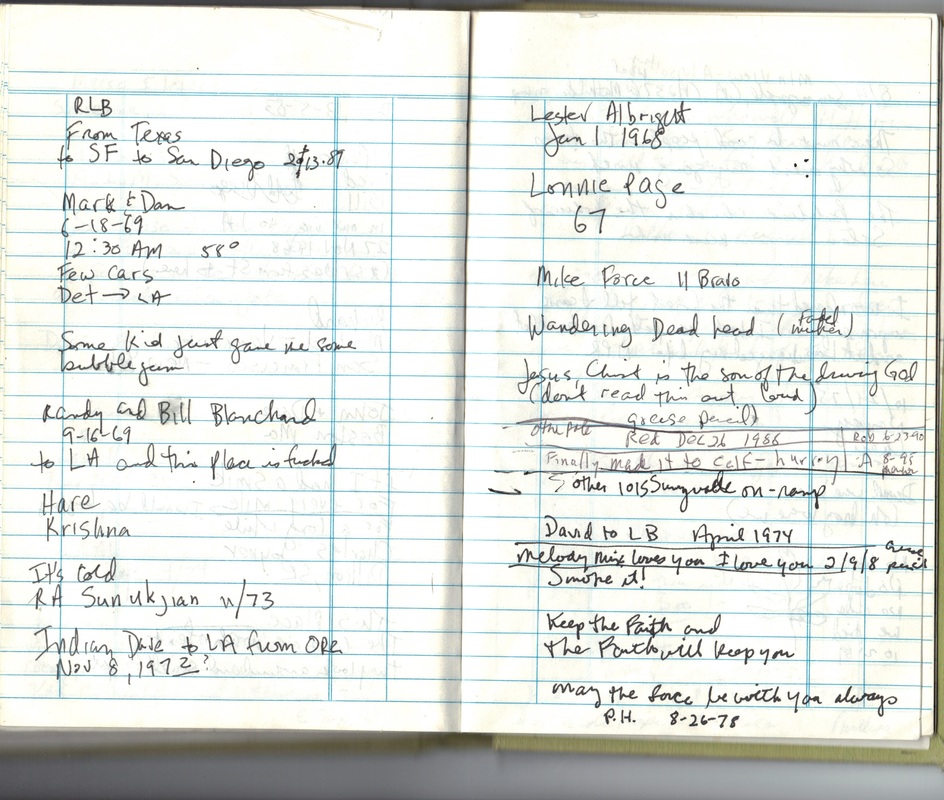 RLB
From Texas
to SF to San Diego 2 $13.87
Mark & Dan
6-18-69
12:30 AM 58°
Few Cars
Det → LA
Some kid just gave me some
bubblegum
Randy and Bill Blanchard
9-16-69
to LA and this place is fucked
Hare
Krishna
It's cold
RA Sunukjian 11/73
Indian Dave to LA from ORE
Nov 8, 1972?
Lester Albright
Jan 1 1968
Lonnie Page
67
Mike Force 11 Bravo
Wandering Dead head (
marker)
Jesus Christ is the son of the God
(don't read this out loud)
grease pencil)
other pole Red Dec 26 1986 Rob 6-27-90
Finally made it to calif- hurray :A 8-98
marker
5 other 1015 Sunnyvale on-ramp
David to LB April 1974
Melody Mix loves you I love you 2/9/8 grease
pencil
Smoke it!
Keep the Faith and
the Faith will keep you
may the force be with you always
P.H. 8-26-78